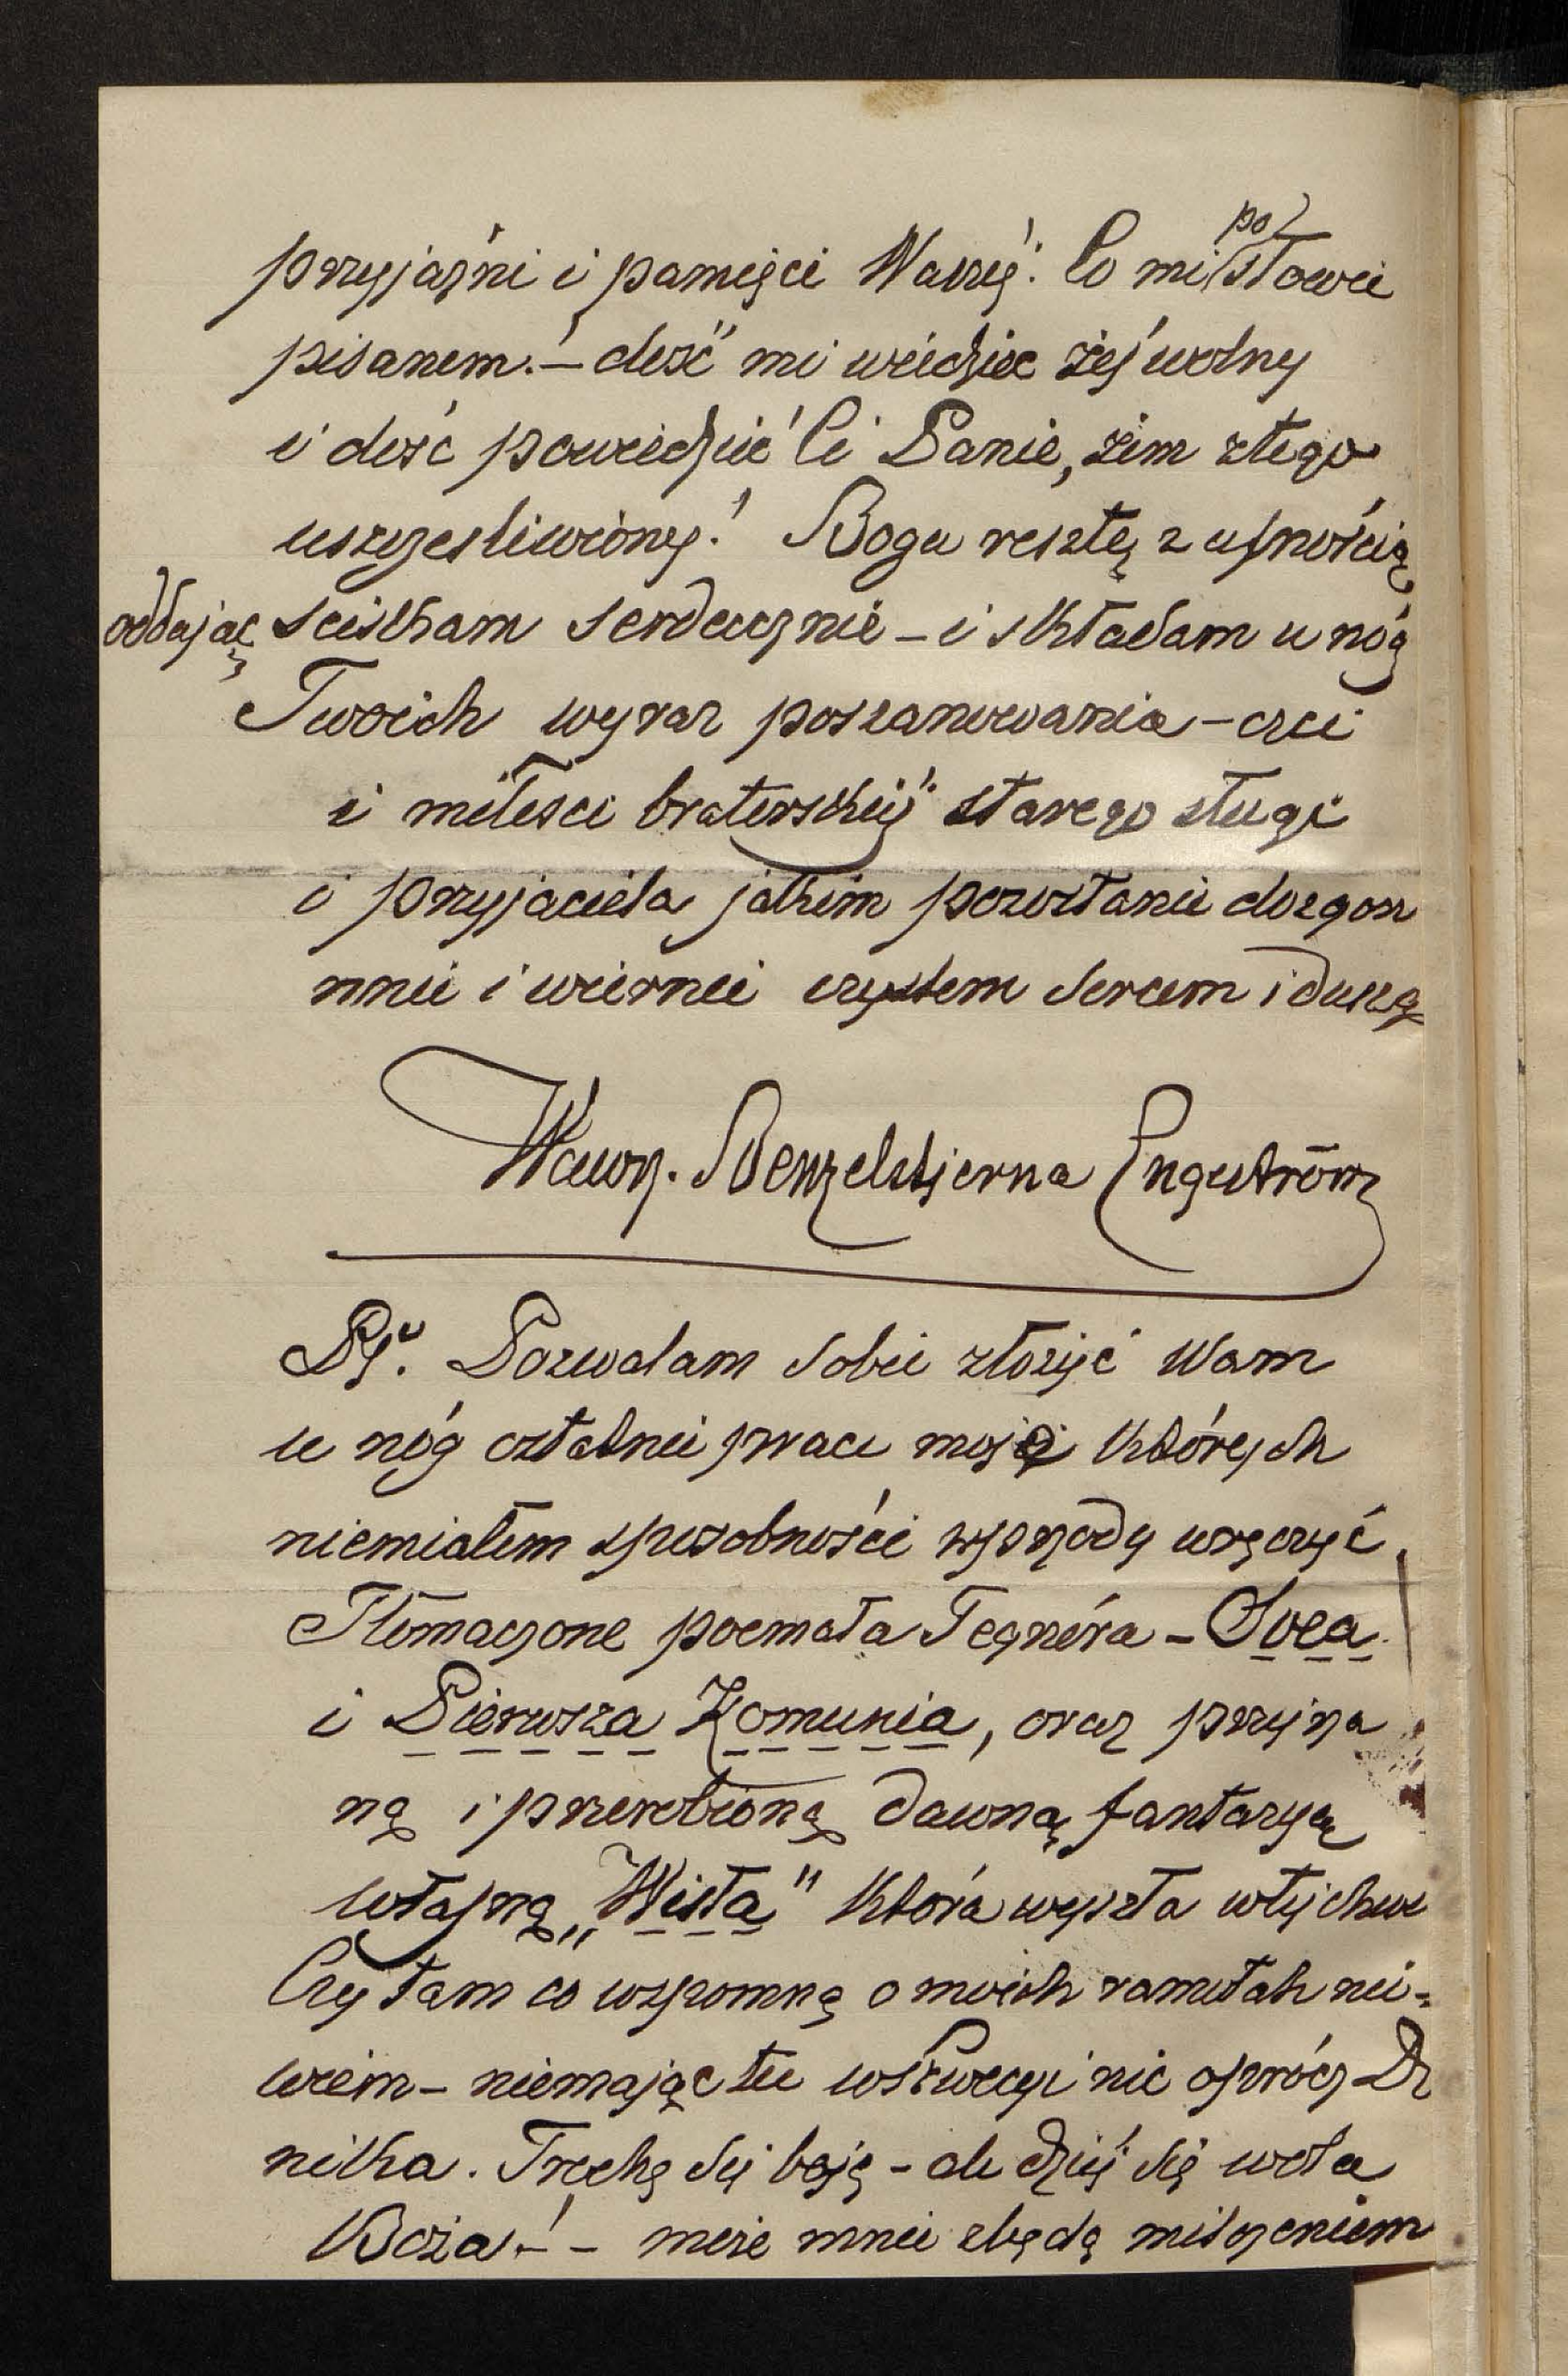 przyjaźni i pamięci Waszéj! Co mi po słowie
pisanem! – dość mi wiedzieć żeś wolny
i dość powiedzieć Ci Panie, żem z tego
uszczęsliwiony! Bogu resztę z ufnością
oddając sciskam serdecznie – i składam u nóg
Twoich wyraz poszanowania – czci
i miłosci braterskiéj starego sługi
i przyjaciela jakim pozostanie dozgon
nnie i wiernie czystem sercem i duszą
Wawrz. Benzelstjerna Engeström
Ps. Pozwalam sobie złożyć Wam
u nóg ostatnie prace moje których
niemiałem sposobności wprzódy wręczyć.
Tłomaczone poemata Tegnéra – Svea
i Pierwsza Komunia, oraz przejrza
ną i przerobioną dawną fantazyą
własną „Wisła" która wyszła w tej chwi
Czy tam co wspomną o moich ramotah nie-
wiem – niemając tu w Szwecyi nic oprócz Dz
nika. Trochę się boję – ale dziéj się wola
Boża! – – może mnie zbędą milczeniem